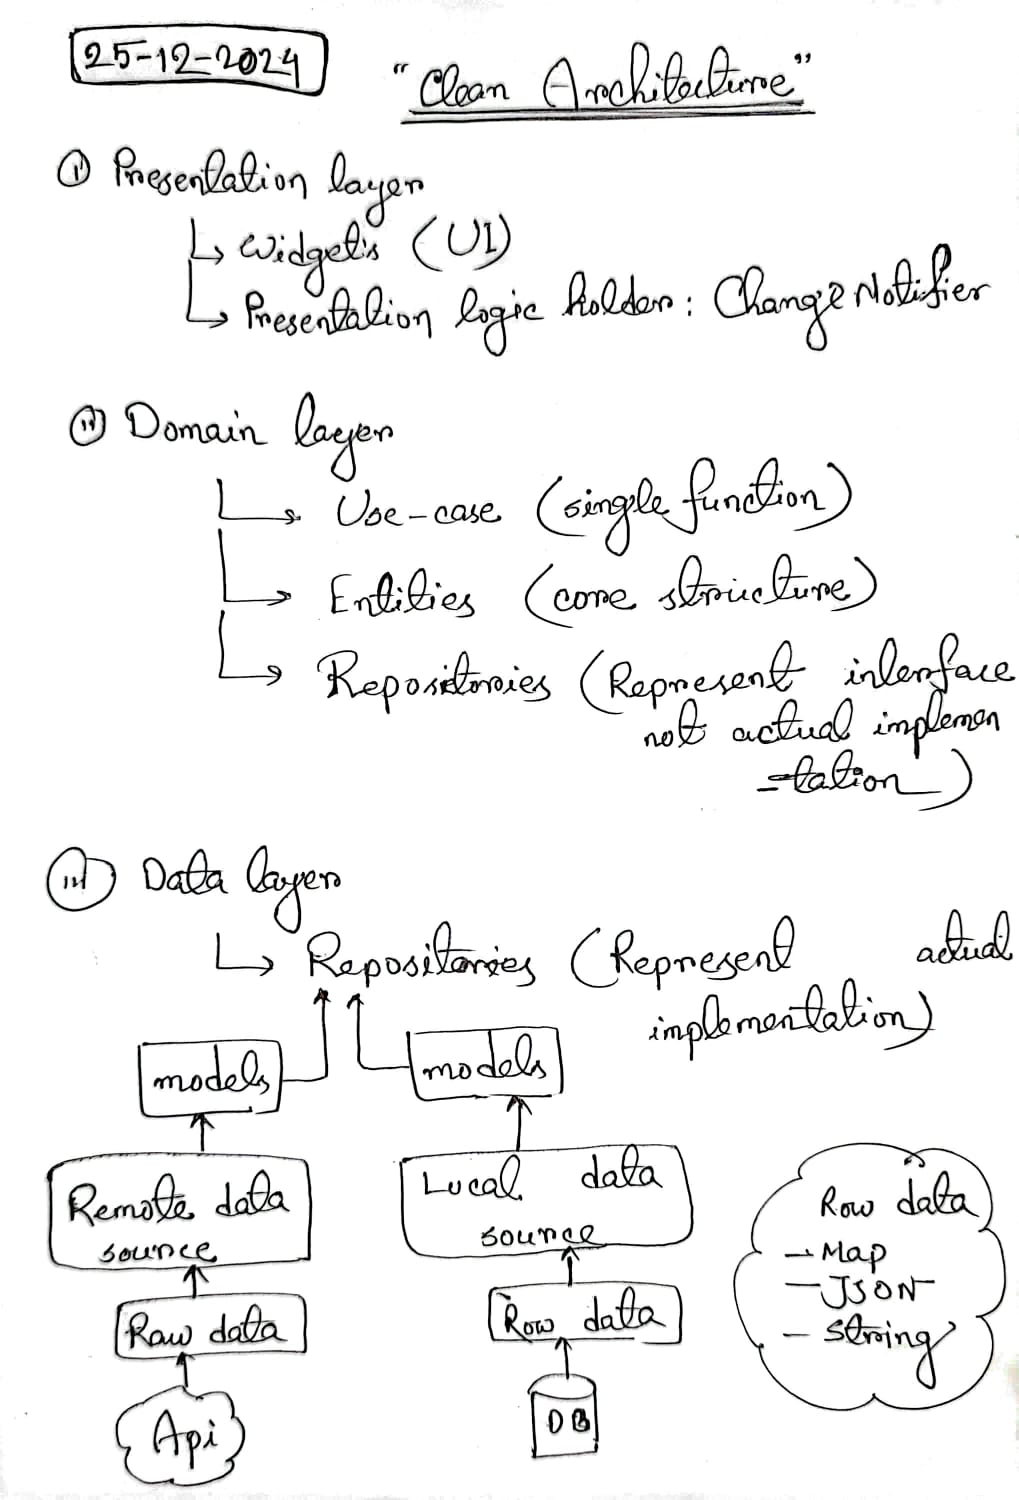 25-12-2024
"Clean Architecture"
① Presentation layer
↳ Widget's (UI)
↳ Presentation logic holder: ChangeNotifier
ⓘⓘ Domain layer
↳ Use-case (single function)
↳ Entities (core structure)
↳ Repositories (Represent interface
not actual implemen
-tation)
ⓘⓘⓘ Data layer
↳ Repositories (Represent actual
implementation)
models
models
Remote data
source
Local data
source
Raw data
Row data
Api
DB
Row data
- Map
- JSON
- string